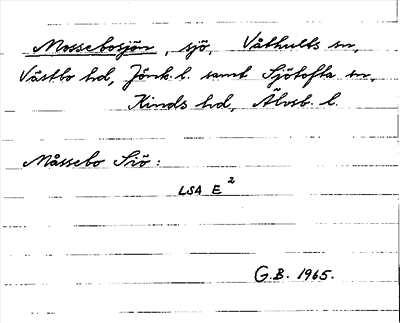 Mossebosjön, sjö, Våthults sn,
Västbo hd, Jönk. l. samt Sjötofta sn,
Kinds hd, Älvsb. l.
Måssebo Siö:
LSA E²
G.B. 1965.